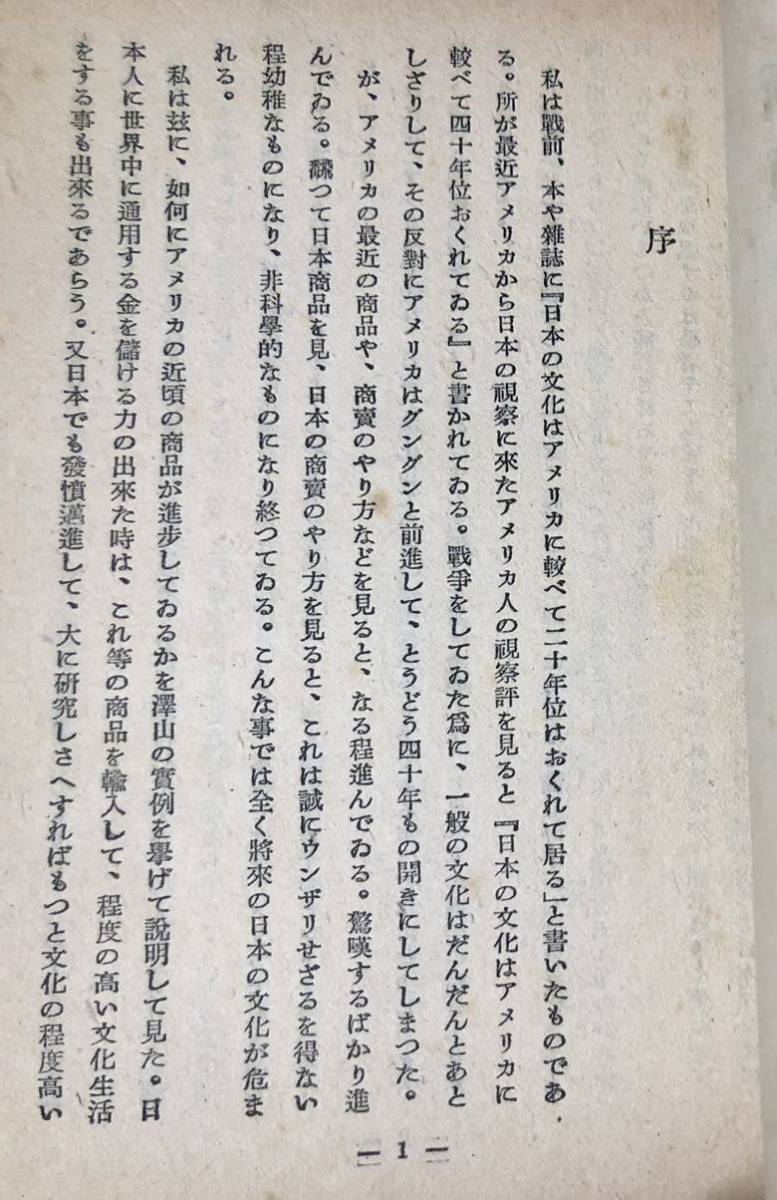 序
私は戰前、本や雜誌に『日本の文化はアメリカに較べて二十年位はおくれて居る」と書いたものであ
る。所が最近アメリカから日本の視察に來たアメリカ人の視察評を見ると『日本の文化はアメリカに
較べて四十年位おくれてゐる』と書かれてゐる。戰爭をしてゐた爲に、一般の文化はだんだんとあと
しざりして、その反對にアメリカはグングンと前進して、とうどう四十年もの開きにしてしまつた。
が、アメリカの最近の商品や、商賣のやり方などを見ると、なる程進んでゐる。驚嘆するばかり進
んでゐる。飜つて日本商品を見、日本の商賣のやり方を見ると、これは誠にウンザリせざるを得ない
程幼稚なものになり、非科學的なものになり終つてゐる。こんな事では全く將來の日本の文化が危ま
れる。
私は玆に、如何にアメリカの近頃の商品が進步してゐるかを澤山の實例を擧げて說明して見た。日
本人に世界中に通用する金を儲ける力の出來た時は、これ等の商品を輸入して、程度の高い文化生活
をする事も出來るであらう。又日本でも發憤邁進して、大に硏究しさへすればもつと文化の程度高い
— 1 —